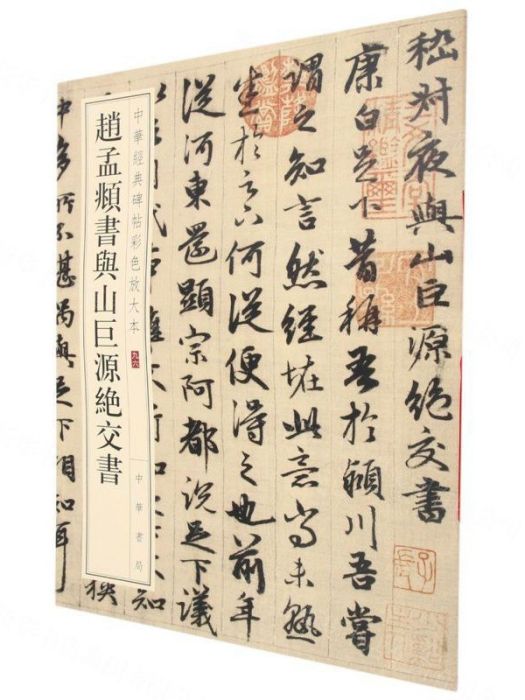 嵇叔夜與山巨源絕交書
康白足下昔稱吾於潁川吾嘗
謂之知言然經怪此意尚未熟
悉於足下何從便得之也前年
從河東還顯宗阿都說足下議
中華經典碑帖彩色放大本 九六
趙孟頫書與山巨源絕交書
中華書局
中多所不堪偶與足下相知耳